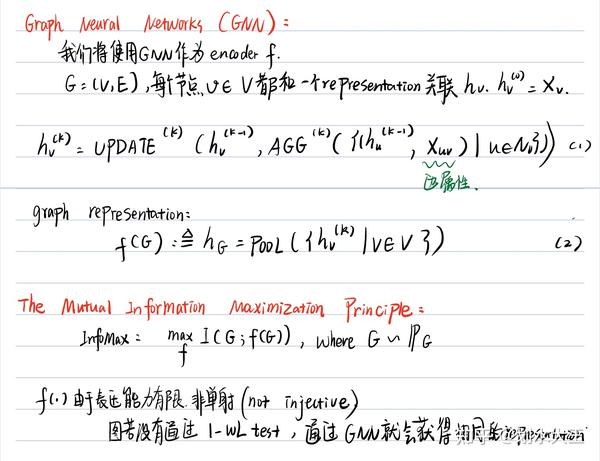 Graph Neural Networks (GNN):
我们将使用GNN作为encoder f.
G=(V,E),每个节点 v∈V都和一个representation关联 hᵥ. hᵥ⁽⁰⁾=Xᵥ.
hᵥ⁽ᵏ⁾=UPDATE⁽ᵏ⁾(hᵥ⁽ᵏ⁻¹⁾, AGG⁽ᵏ⁾({(hᵤ⁽ᵏ⁻¹⁾, Xᵤᵥ)|u∈Nᵥ})) (1)
边属性.
graph representation:
f(G):≜ h_G=POOL({hᵥ⁽ᵏ⁾|v∈V}) (2)
The Mutual Information Maximization Principle:
InfoMax: max_f I(G;f(G)), where G∽ℙ_G
f(.)由于表达能力有限,非单射(not injective)
图若没有通过1-WL test,通过GNN就会获得相同的
知乎